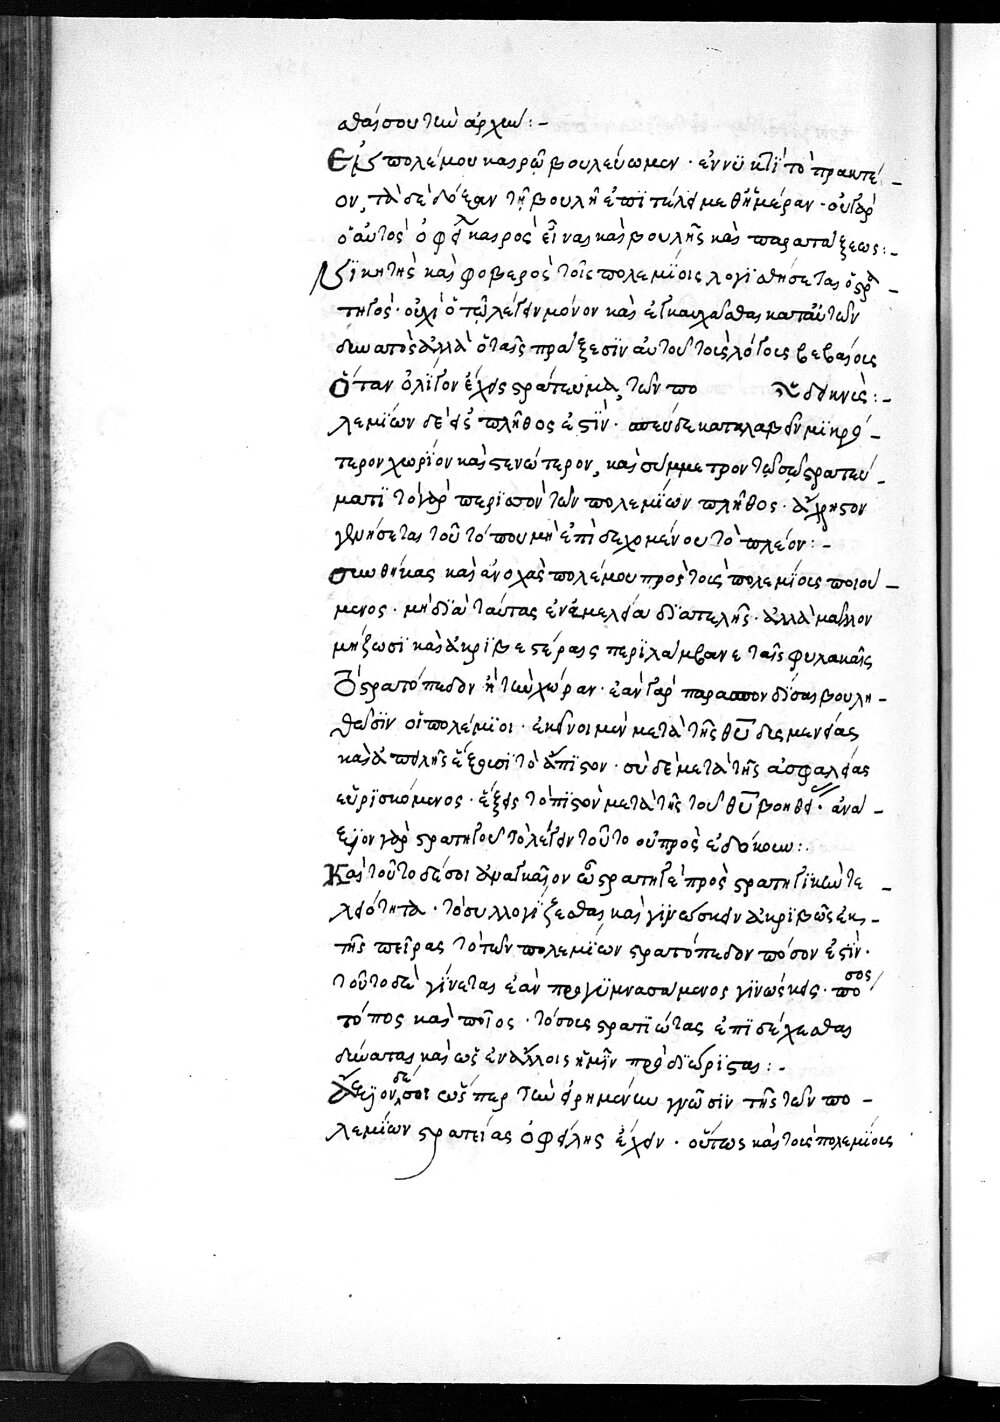 σθαί σου τὴν ἀρχήν :-
Ἐν πολέμου καιρῷ βουλεύωμεν · ἐν νυκτὶ τὸ πρακτέ-
ον, τὰ δὲ δόξαν τῇ βουλῇ ἐπιτέλει μεθ' ἡμέραν · οὐ γὰρ
ὁ αὐτὸς ὀφείλει καιρὸς εἶναι καὶ βουλῆς καὶ παρατάξεως :-
Νικητὴς καὶ φοβερὸς τοῖς πολεμίοις λογισθήσεται ὁ στρα-
τηγὸς · οὐχὶ ὁ τῷ λέγειν μόνον καὶ ἐγκαυχᾶσθαι κατ' αὐτῶν
δυνατὸς ἀλλὰ ὁ ταῖς πράξεσιν αὐτοῦ τοὺς λόγους βεβαίους
Ὅταν ὀλίγον ἔχεις στράτευμα, τῶν πο δεικνύς :-
λεμίων δὲ πλῆθος ἐστίν · σπεῦδε καταλαβεῖν μικρό-
τερον χωρίον καὶ στενώτερον, καὶ σύμμετρον τῷ σῷ στρατεύ-
ματι τὸ γὰρ περισσὸν τῶν πολεμίων πλῆθος · ἄχρηστον
γενήσεται τοῦ τόπου μὴ ἐπιδεχομένου τὸ πλεῖον :-
συνθήκας καὶ ἀνοχὰς πολέμου πρὸς τοὺς πολεμίους ποιού-
μενος · μὴ διὰ ταύτας ἐν ἀμελείᾳ διατελῇς · ἀλλὰ μᾶλλον
μείζωσι καὶ ἀκριβεστέραις περιλάμβανε ταῖς φυλακαῖς
τὸ στρατόπεδον ἢ τὴν χώραν · ἐὰν γὰρ παρασπονδῆσαι βουλη-
θῶσιν οἱ πολέμιοι · ἐκεῖνοι μὲν μετὰ τῆς θυ δυσμενείας
καὶ ἀπειλῆς ἕξουσι τὸ ἄπιστον · σὺ δὲ μετὰ τῆς ἀσφαλείας
εὑρισκόμενος · ἕξεις τὸ πιστὸν μετὰ τῆς τοῦ θυ βοηθείας · ἀνά-
ξιον γὰρ στρατηγοῦ τὸ λέγειν τοῦτο οὐ προσεδόκουν :.
Καὶ τοῦτο δέ σοι ἀναγκαῖον ὦ στρατηγὲ πρὸς στρατηγικὴν τε-
λειότητα · τὸ συλλογίζεσθαι καὶ γινώσκειν ἀκριβῶς ἐκ-
τῆς πείρας τὸ τῶν πολεμίων στρατόπεδον πόσον ἐστίν ·
τοῦτο δὲ γίνεται ἐὰν προγυμνασάμενος γινώσκεις · πόσος
τόπος καὶ ποῖος · πόσους στρατιώτας ἐπιδέχεσθαι
δύναται καὶ ὡς ἐν ἄλλοις ἡμῖν προδιώρισται :-
Ἄξιον δέ σοι ὥσπερ τὴν εἰρημένην γνῶσιν τῆς τῶν πο-
λεμίων στρατείας ὀφείλης ἔχειν · οὕτως καὶ τοὺς πολεμίους